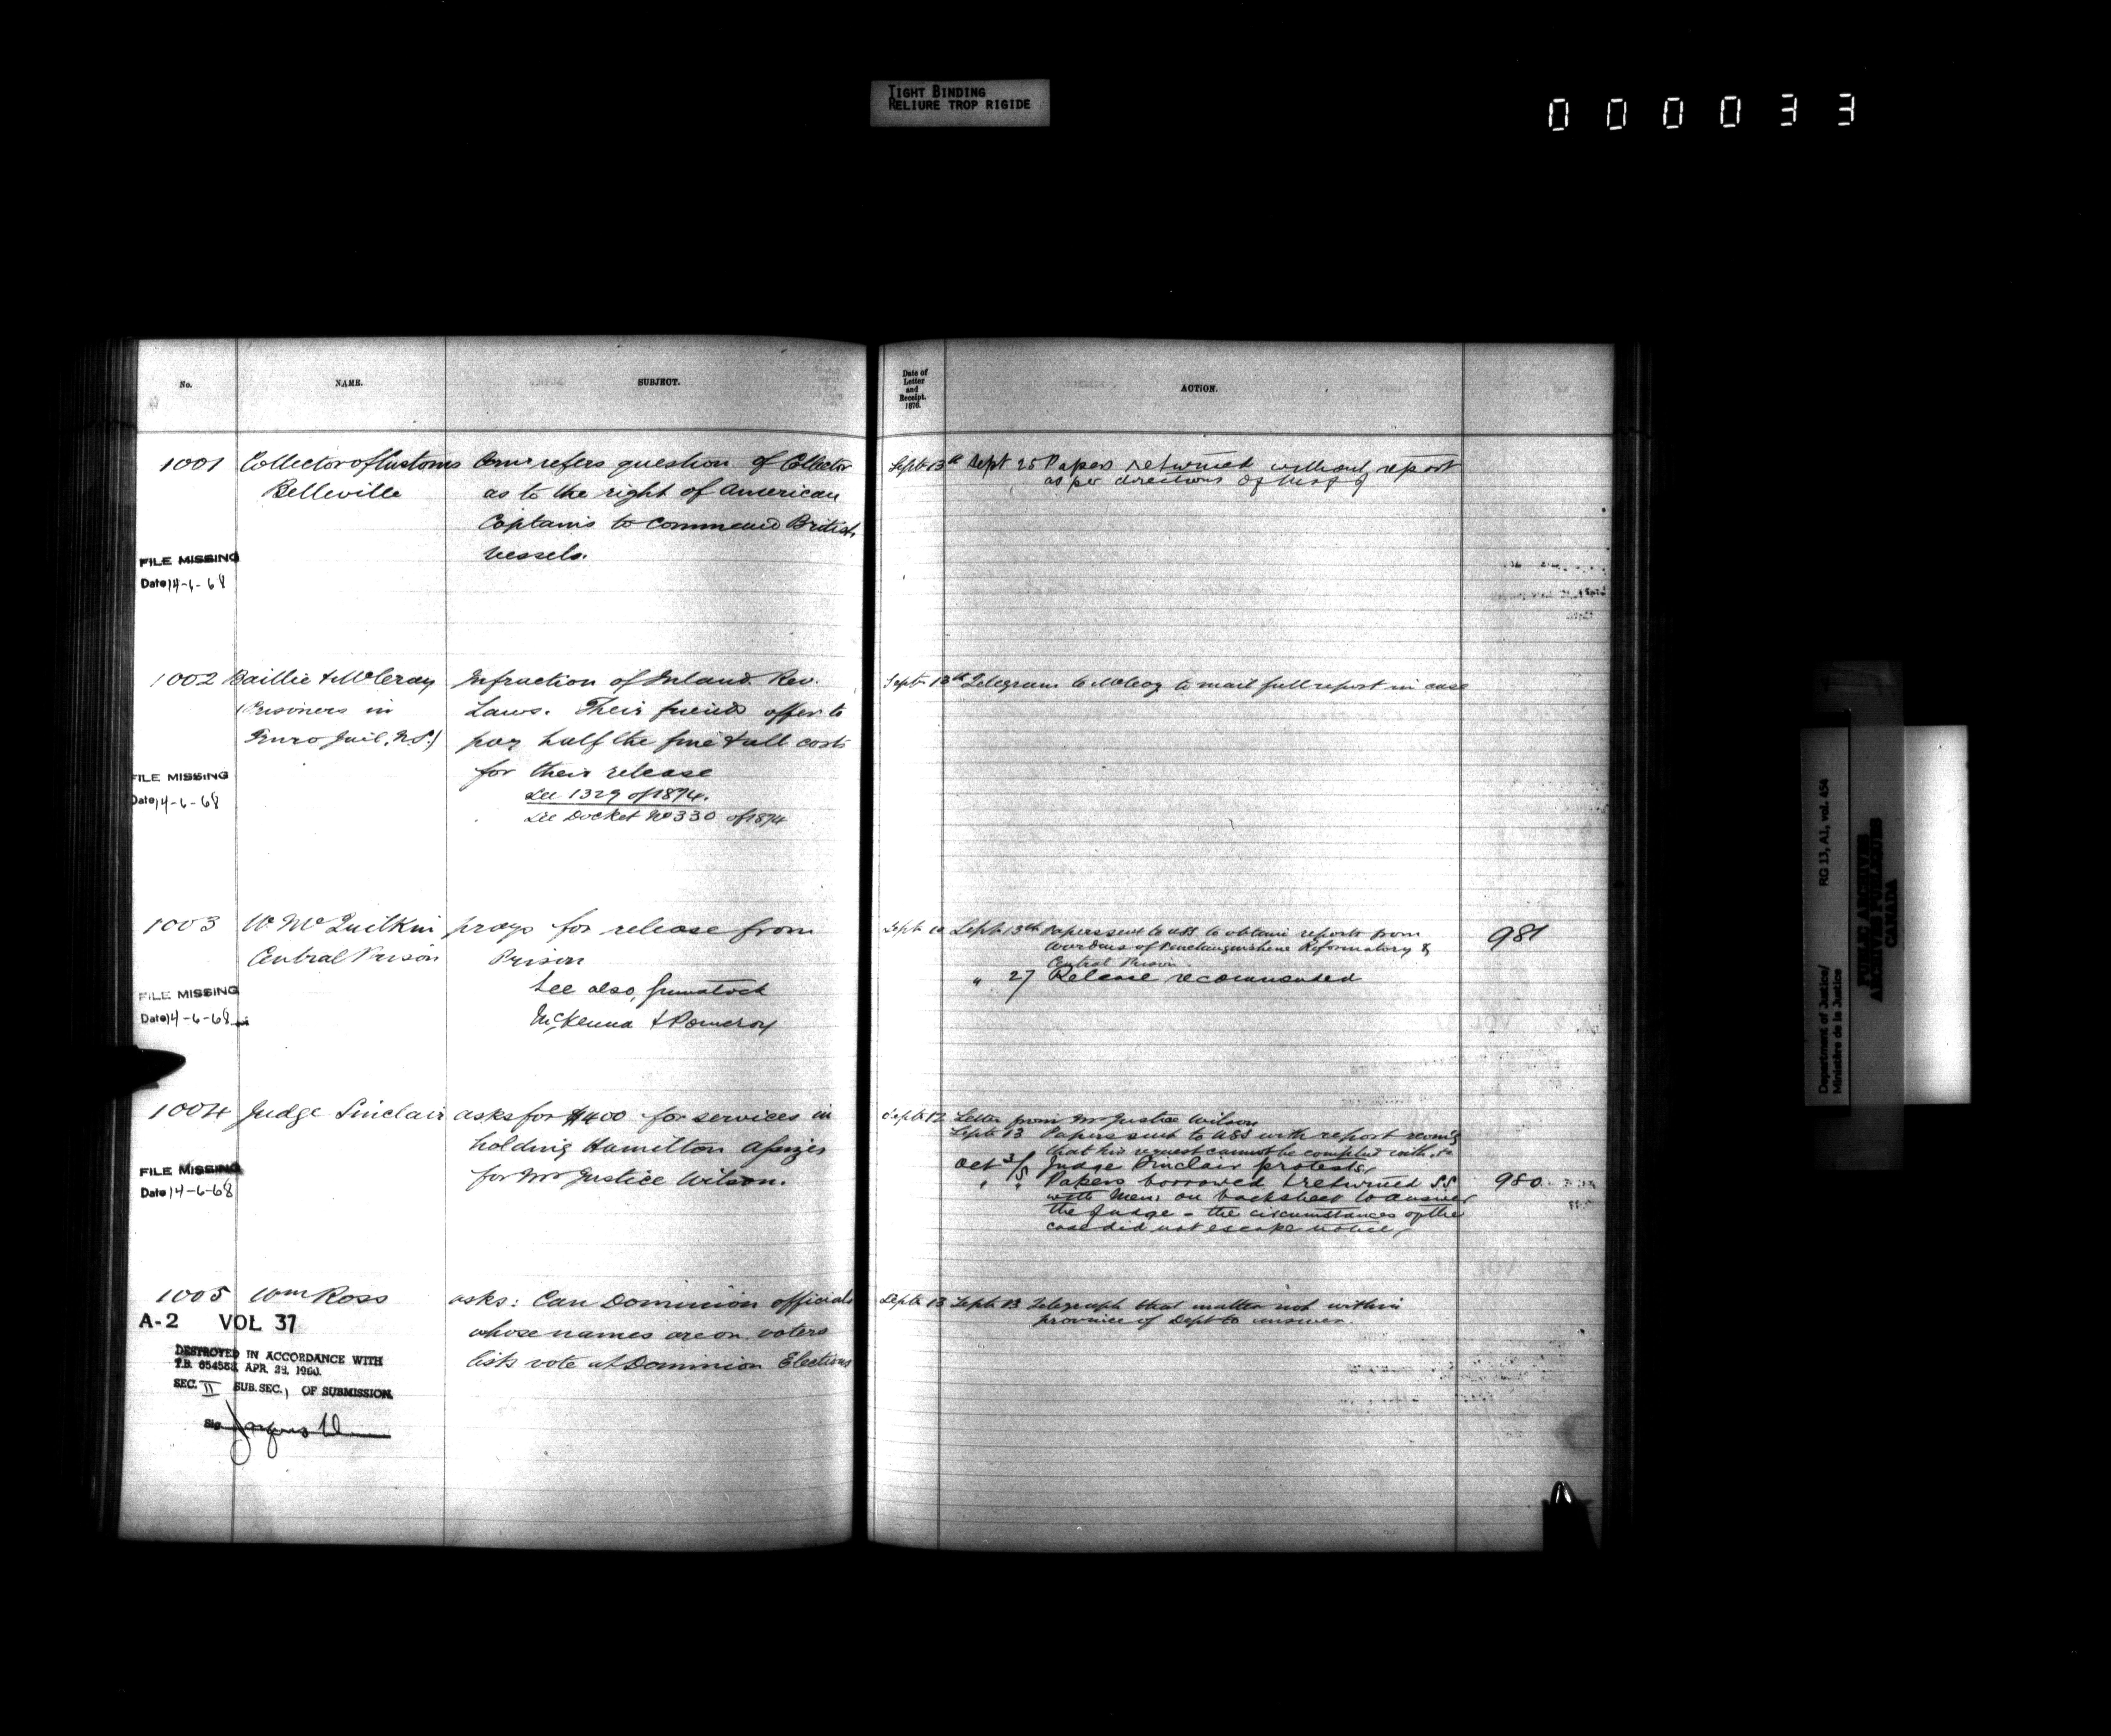 TIGHT BINDING
RELIURE TROP RIGIDE
000033
No.
NAME.
SUBJECT.
Date of
Letter
and
Receipt.
1876.
ACTION.
1001 Collector of Customs refers question of Collector
Belleville as to the right of American
Captains to command British
vessels.
Sept 13th Sept 25 Papers returned without report
as per directions of
FILE MISSING
Date 14-6-68
1002 Baillie & McCray Infraction of Inland Rev.
(Prisoners in Laws. Their friends offer to
Truro Jail, N.S.) pay half the fine & all costs
for their release
See 1329 of 1874.
See Docket No 330 of 1874
Sept 13th Telegram to to mail full report in case
FILE MISSING
Date 14-6-68
1003 W. McQuilkin prays for release from
Central Prison Prison
See also,
McKenna & Pomeroy
Sept 12 Sept 13th Papers sent to USS to obtain reports from
Wardens of Penetanguishene Reformatory &
Central Prison.
" 27 Release recommended
981
FILE MISSING
Date 14-6-68
1004 Judge Sinclair asks for $400 for services in
holding Hamilton Assizes
for Mr Justice Wilson.
Sept 12 Letter from Mr Justice Wilson
Sept 13 Papers sent to USS with report
that his request cannot be complied with
Oct 3/5 Judge Sinclair protests
" " Papers borrowed & returned SS
with Mem. on backsheet to answer
the Judge - the circumstances of the
case did not escape notice
980
FILE MISSING
Date 14-6-68
1005 Wm Ross asks: Can Dominion officials
whose names are on voters
lists vote at Dominion Elections
Sept 13 Sept 13 Telegraph that matter not within
province of Dept to answer.
A-2 VOL 37
DESTROYED IN ACCORDANCE WITH
T.B. APR. 1960.
SEC. II SUB. SEC. 1 OF SUBMISSION.
Sig.
Department of Justice/
Ministère de la Justice
RG 13, A1, vol. 454
PUBLIC ARCHIVES
ARCHIVES PUBLIQUES
CANADA